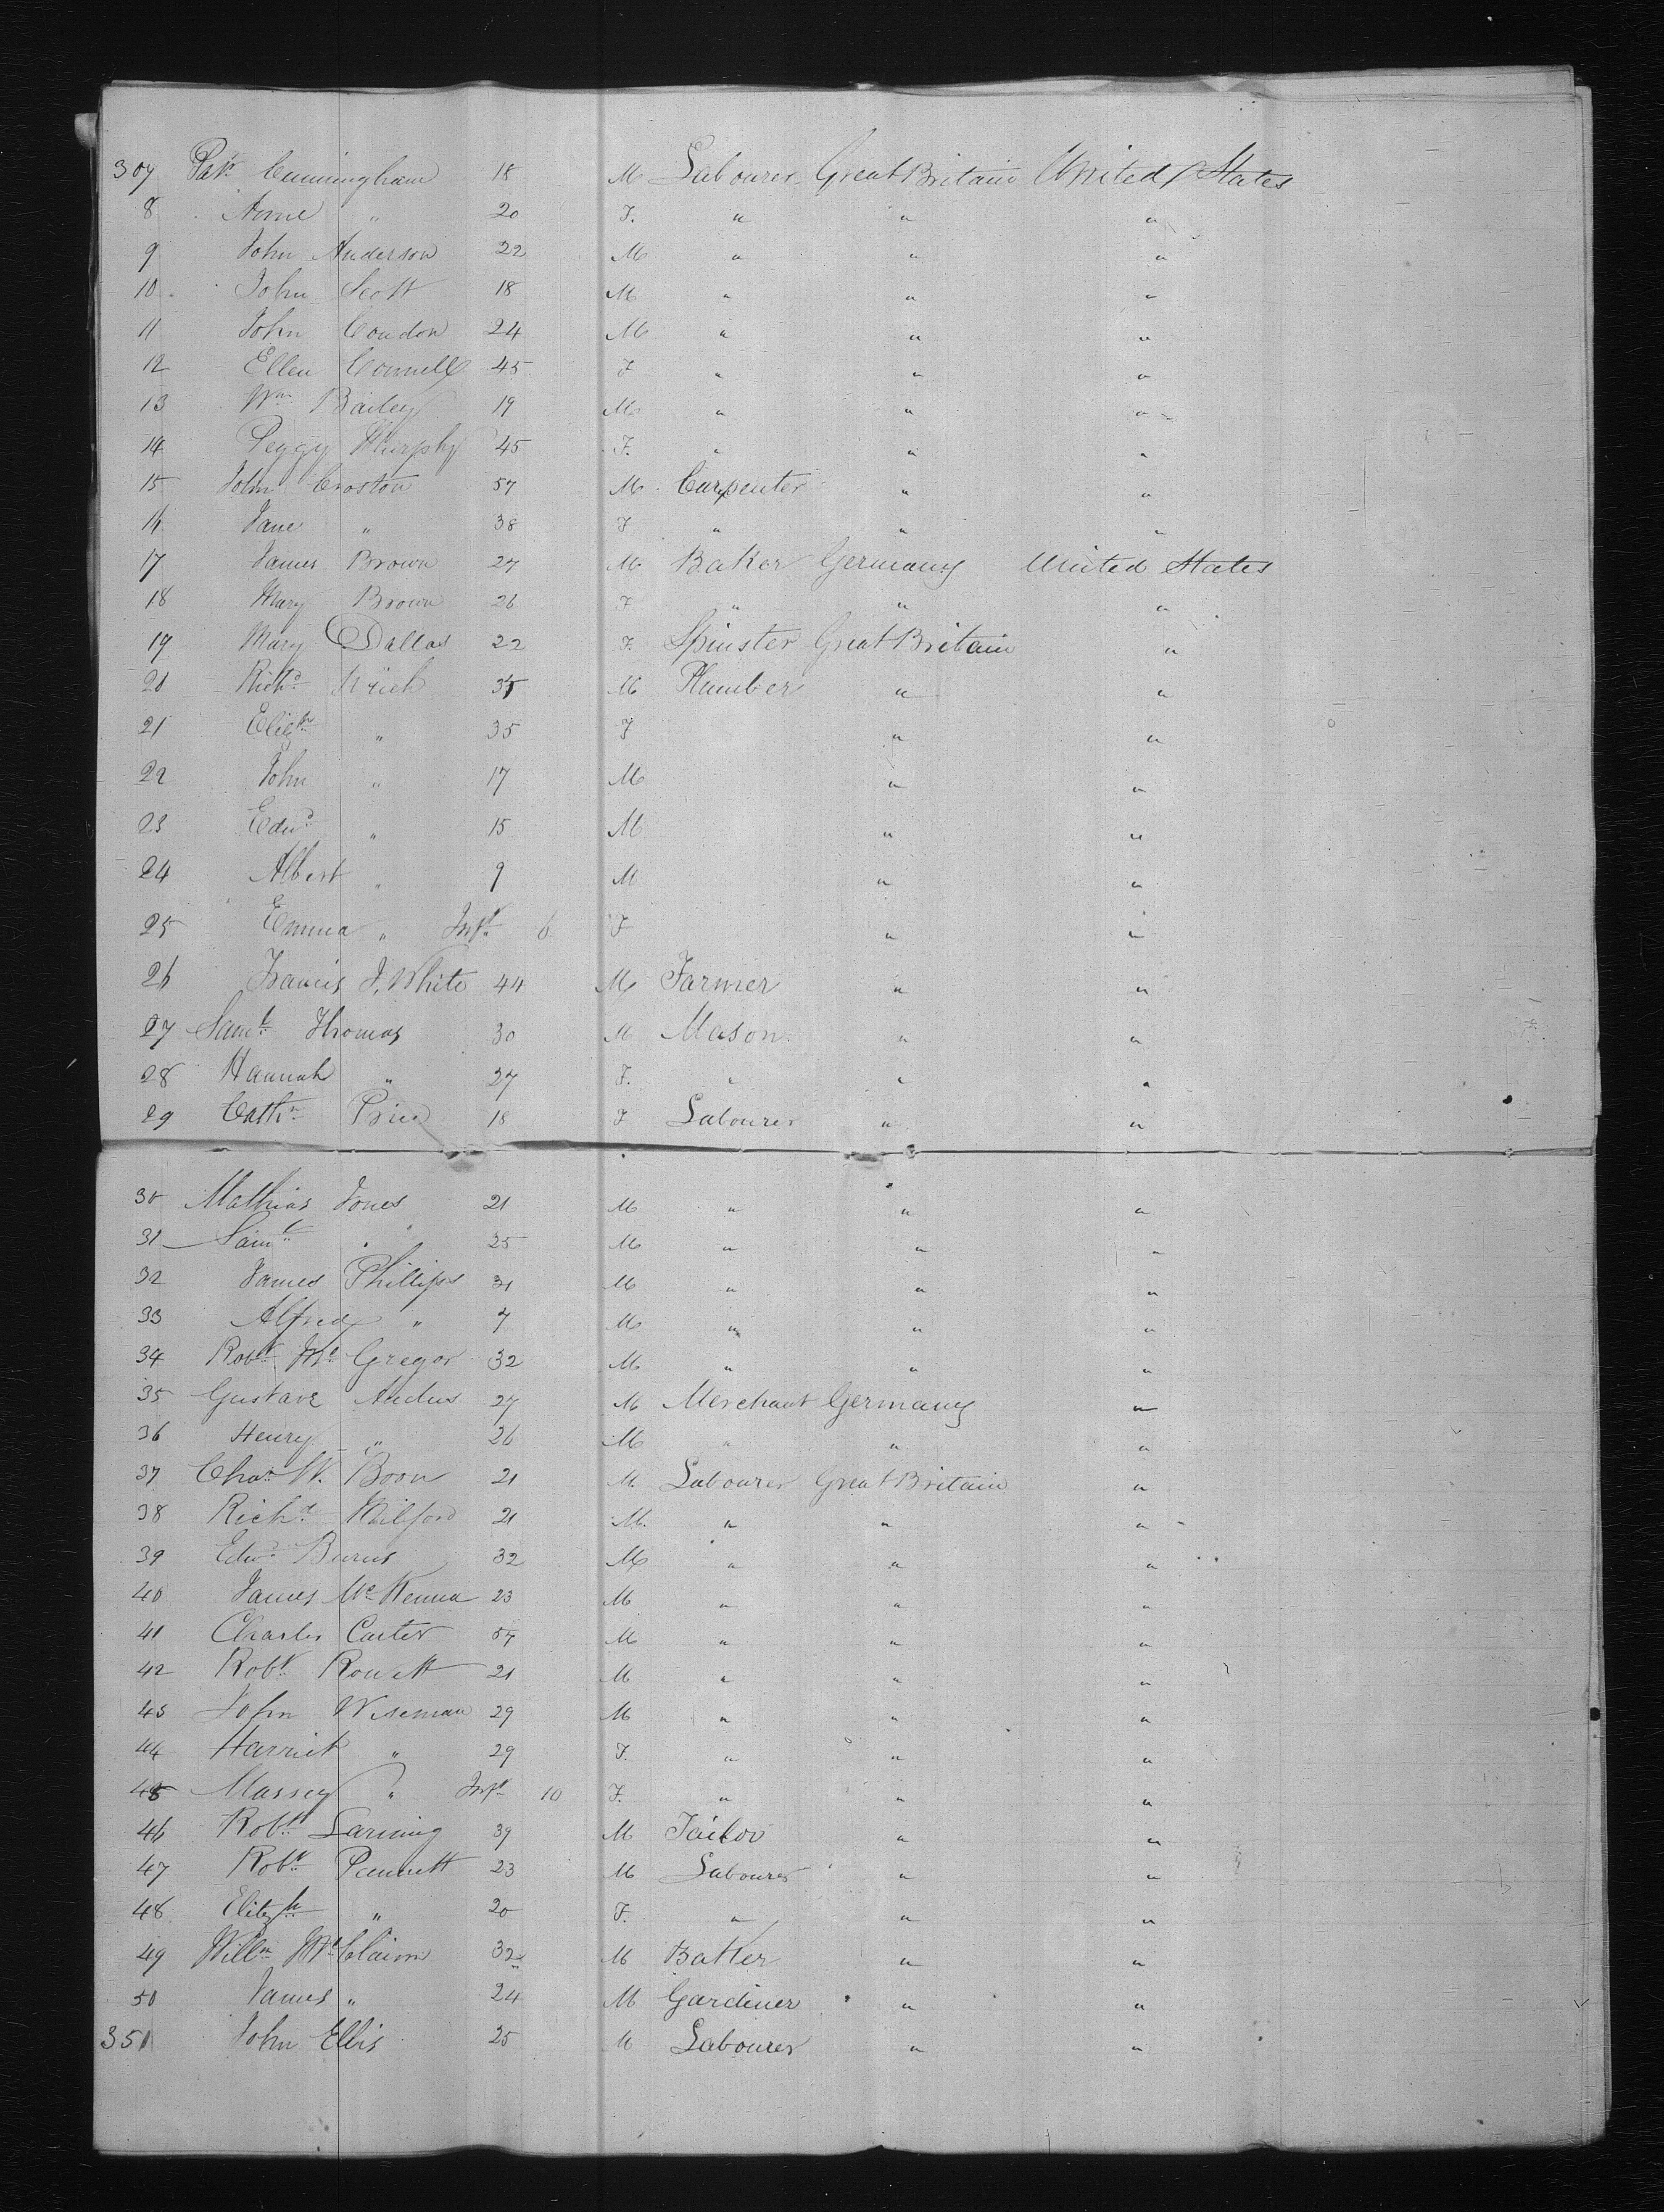 307 Patk Cunningham 18 M Labourer Great Britain United States
8 Anne " 20 F. " " "
9 John Anderson 22 M " " "
10 John Scott 18 M " " "
11 John Condon 24 M " " "
12 Ellen Connell 45 F " " "
13 Wm Bailey 19 M " " "
14 Peggy Murphy 45 F. " " "
15 John Croston 57 M Carpenter " "
16 Jane " 38 F " " "
17 James Brown 27 M Baker Germany United States
18 Mary Brown 26 F " " "
19 Mary Dallas 22 F. Spinster Great Britain "
20 Richd 35 M Plumber " "
21 Elizth " 35 F " "
22 John " 17 M " "
23 Edwd " 15 M " "
24 Albert " 9 M " "
25 Emma " Inft 6 F " "
26 Francis J. White 44 M Farmer " "
27 Saml Thomas 30 M Mason " "
28 Hannah " 27 F. " " "
29 Cathn Price 18 F Labourer " "
30 Mathias Jones 21 M " " "
31 Saml " 25 M " " "
32 James Phillips 31 M " " "
33 Alfred " 7 M " " "
34 Robt McGregor 32 M " " "
35 Gustave 27 M Merchant Germany "
36 Henry " 26 M " " "
37 Chas W. Boon 21 M. Labourer Great Britain "
38 Richd Milford 21 M. " " "
39 Edwd Burns 32 M " " "
40 James McKenna 23 M " " "
41 Charles Carter 57 M " " "
42 Robt Rowett 21 M " " "
43 John Wiseman 29 M " " "
44 Harriet " 29 F. " " "
45 Massey " Inft 10 F. " " "
46 Robt Larning 39 M Tailor " "
47 Robt Pannett 23 M Labourer " "
48 Elizth " 20 F. " " "
49 Willm McClaim 32 M Batter " "
50 James " 24 M Gardiner " "
351 John Ellis 25 M Labourer " "